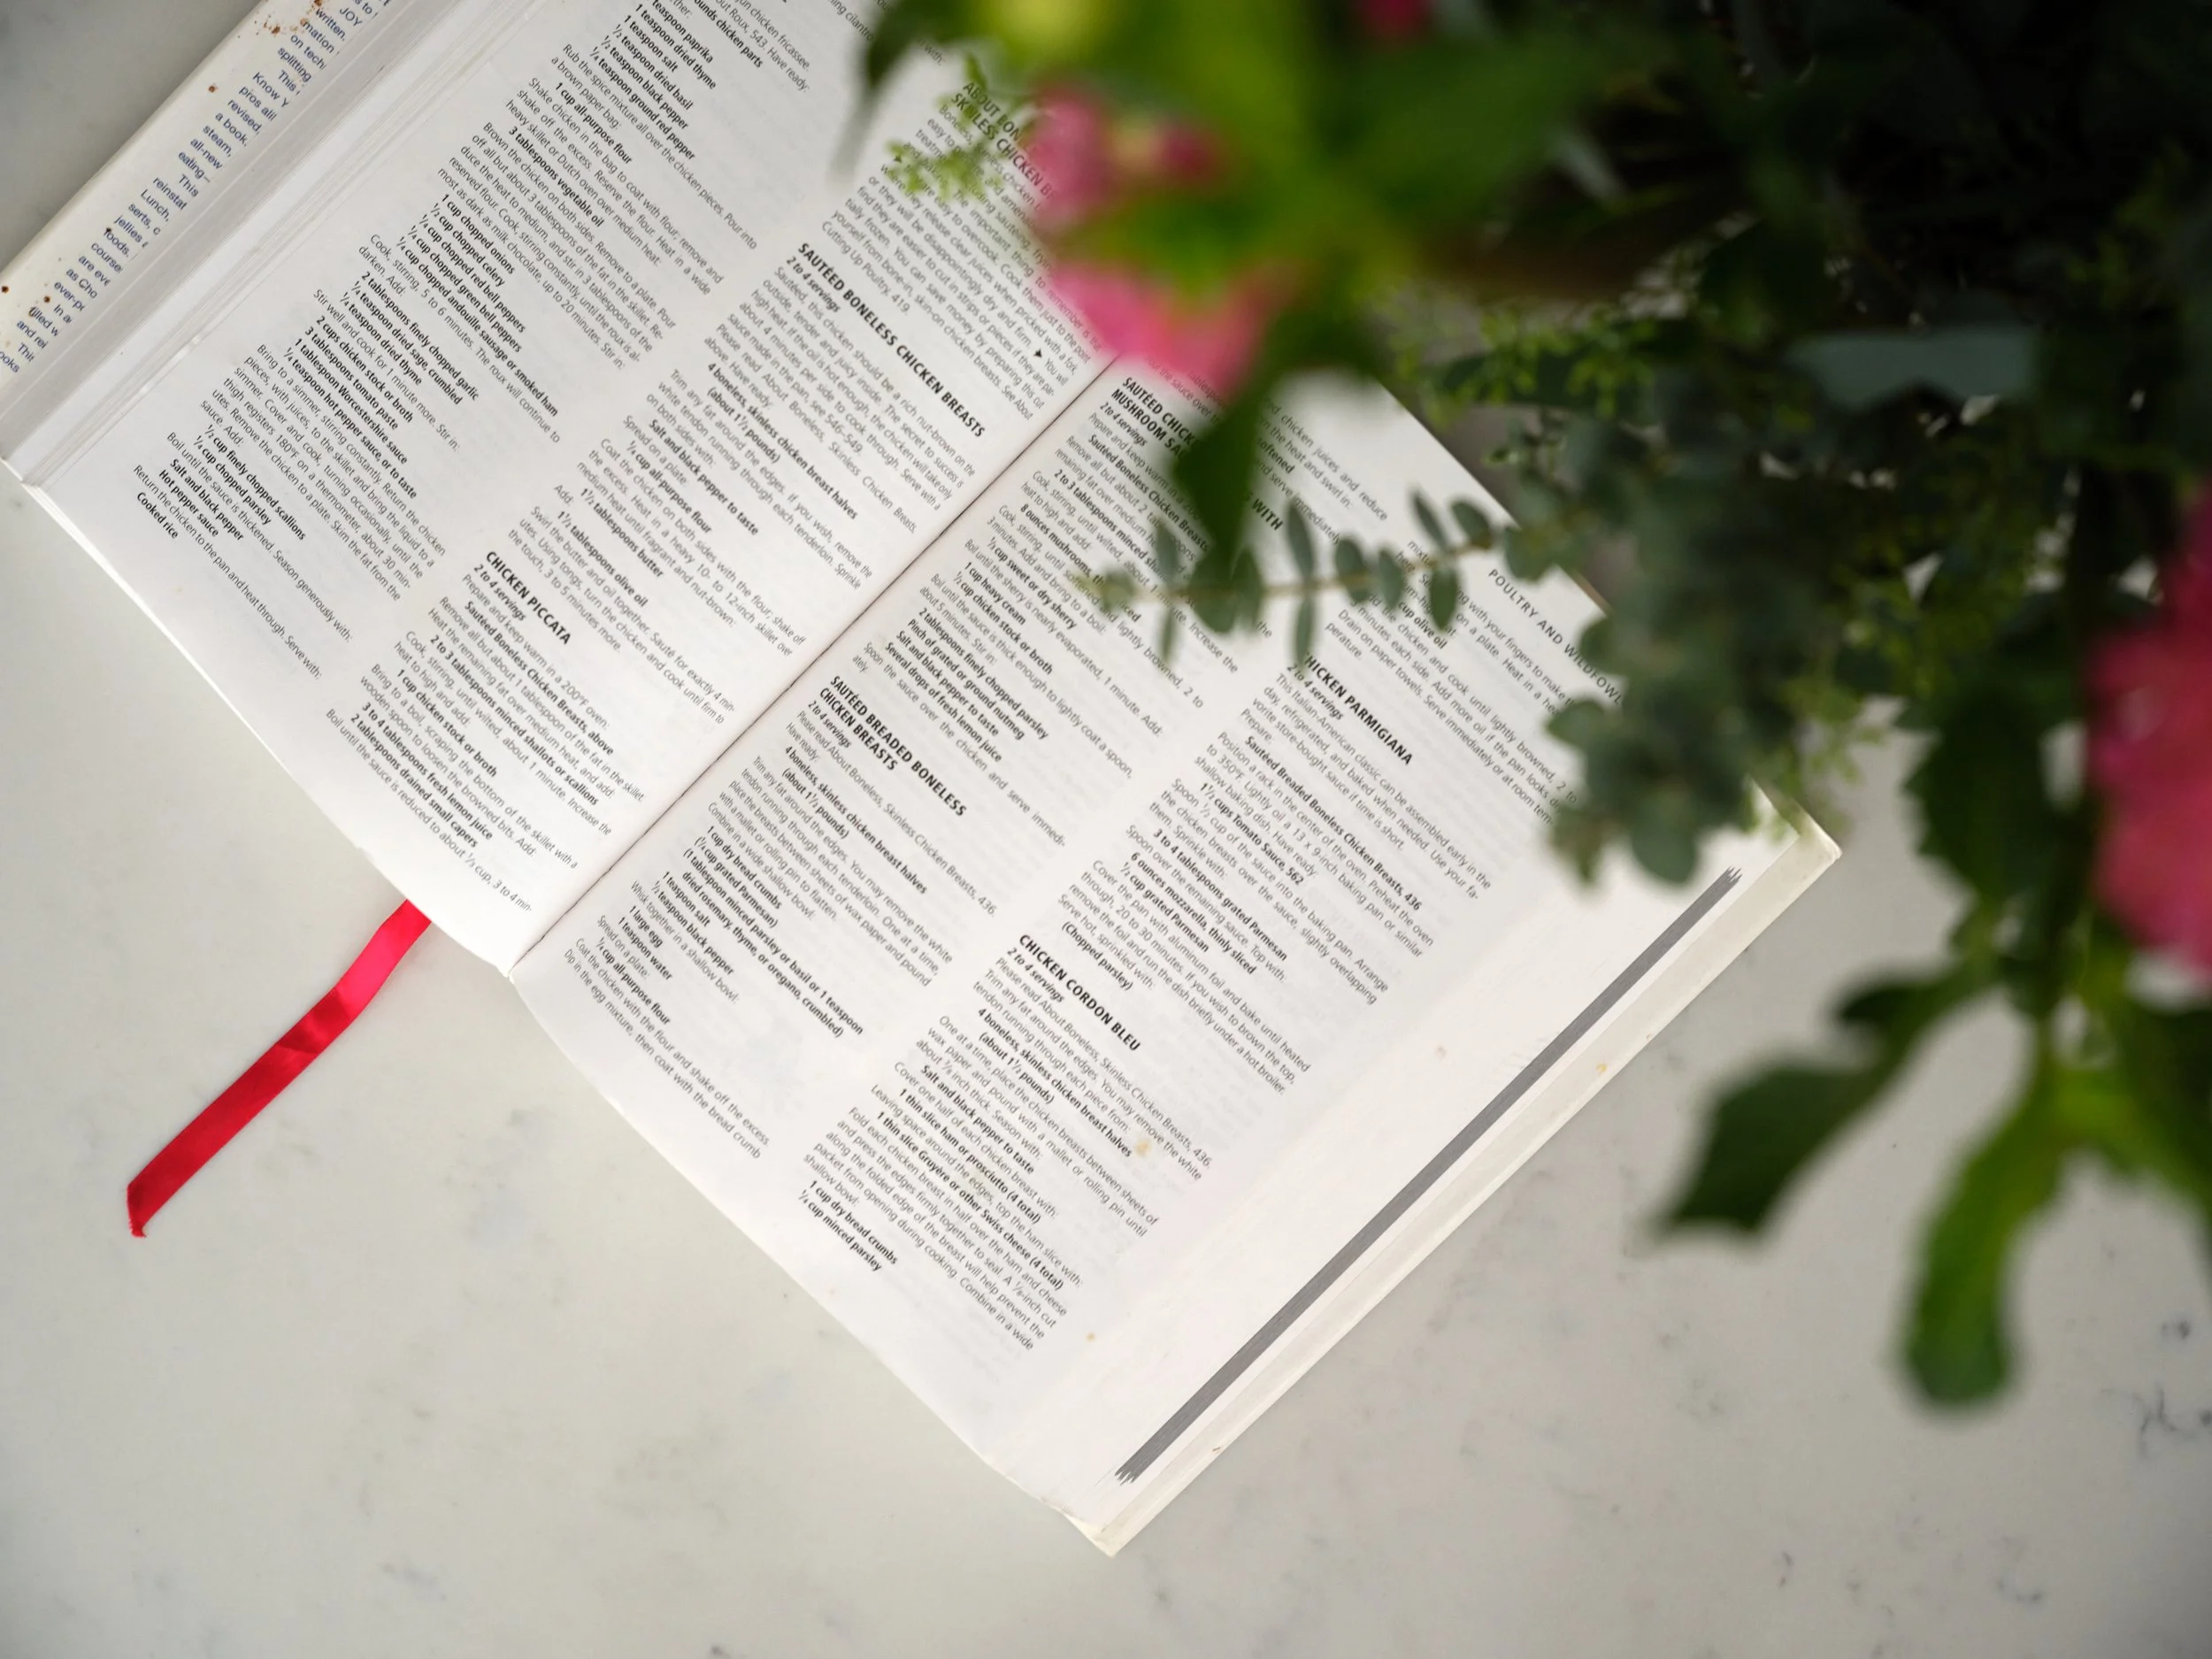 to
JOY
written,
mation
on tech
splitting
This
Know Y
pros ali
revised,
a book,
steam,
all-new
eating—
This
reinstat
Lunch,
serts, c
jellies
foods.
course
are eve
as Cho
ever-p
In a
filled w
and rei
Thi
ooks
chicken fricassee.
out Roux, 543. Have ready:
ounds chicken parts
ther:
teaspoon paprika
1 teaspoon dried thyme
1 teaspoon salt
1/2 teaspoon dried basil
1/2 teaspoon black pepper
1/4 teaspoon ground red pepper
Rub the spice mixture all over the chicken pieces. Pour into
a brown paper bag:
1 cup all-purpose flour
Shake chicken in the bag to coat with flour; remove and
shake off the excess. Reserve the flour. Heat in a wide
heavy skillet or Dutch oven over medium heat:
3 tablespoons vegetable oil
Brown the chicken on both sides. Remove to a plate. Pour
off all but about 3 tablespoons of the fat in the skillet. Re-
duce the heat to medium, and stir in 3 tablespoons of the
reserved flour. Cook, stirring constantly, until the roux is al-
most as dark as milk chocolate, up to 20 minutes. Stir in:
1 cup chopped onions
1/2 cup chopped celery
1/4 cup chopped red bell peppers
1/4 cup chopped green bell peppers
1/4 cup chopped andouille sausage or smoked ham
Cook, stirring, 5 to 6 minutes. The roux will continue to
darken. Add:
2 tablespoons finely chopped garlic
1/4 teaspoon dried sage, crumbled
1/4 teaspoon dried thyme
Stir well and cook for 1 minute more. Stir in:
2 cups chicken stock or broth
3 tablespoons tomato paste
1 tablespoon Worcestershire sauce
1/4 teaspoon hot pepper sauce, or to taste
Bring to a simmer, stirring constantly. Return the chicken
pieces, with juices, to the skillet and bring the liquid to a
simmer. Cover and cook, turning occasionally, until the
thigh registers 180°F on a thermometer, about 30 min-
utes. Remove the chicken to a plate. Skim the fat from the
sauce. Add:
1/2 cup finely chopped scallions
1/4 cup chopped parsley
Boil until the sauce is thickened. Season generously with:
Salt and black pepper
Hot pepper sauce
Return the chicken to the pan and heat through. Serve with:
Cooked rice
ABOUT BON
SKINLESS CHICKEN B
or they will be disappointingly dry and firm. ▲ You will
find they are easier to cut in strips or pieces if they are par-
tially frozen. You can save money by preparing this cut
yourself from bone-in, skin-on chicken breasts. See About
Cutting Up Poultry, 419.
SAUTÉED BONELESS CHICKEN BREASTS
2 to 4 servings
Sautéed, this chicken should be a rich nut-brown on the
outside, tender and juicy inside. The secret to success is
high heat; if the oil is hot enough, the chicken will take only
about 4 minutes per side to cook through. Serve with a
sauce made in the pan, see 546–549.
Please read About Boneless, Skinless Chicken Breasts,
above. Have ready:
4 boneless, skinless chicken breast halves
(about 1 1/2 pounds)
Trim any fat around the edges. If you wish, remove the
white tendon running through each tenderloin. Sprinkle
on both sides with:
Salt and black pepper to taste
Spread on a plate:
1/4 cup all-purpose flour
Coat the chicken on both sides with the flour; shake off
the excess. Heat in a heavy 10- to 12-inch skillet over
medium heat until fragrant and nut-brown:
1 1/2 tablespoons butter
Add:
1 1/2 tablespoons olive oil
Swirl the butter and oil together. Sauté for exactly 4 min-
utes. Using tongs, turn the chicken and cook until firm to
the touch, 3 to 5 minutes more.
CHICKEN PICCATA
2 to 4 servings
Prepare and keep warm in a 200°F oven:
Sautéed Boneless Chicken Breasts, above
Remove all but about 1 tablespoon of the fat in the skillet.
Heat the remaining fat over medium heat, and add:
2 to 3 tablespoons minced shallots or scallions
Cook, stirring, until wilted, about 1 minute. Increase the
heat to high and add:
1 cup chicken stock or broth
Bring to a boil, scraping the bottom of the skillet with a
wooden spoon to loosen the browned bits. Add:
3 to 4 tablespoons fresh lemon juice
2 tablespoons drained small capers
Boil until the sauce is reduced to about 1/3 cup, 3 to 4 min-
POULTRY AND WILDFOWL
SAUTÉED CHICK
MUSHROOM SA
WITH
2 to 4 servings
Prepare and keep warm in a 200
Sautéed Boneless Chicken Breasts
Remove all but about 2
remaining fat over medium
2 to 3 tablespoons minced sh
Cook, stirring, until wilted, about 1 minute. Increase the
heat to high and add:
8 ounces mushrooms,
Cook, stirring, until softened and lightly browned, 2 to
3 minutes. Add and bring to a boil:
1/3 cup sweet or dry sherry
Boil until the sherry is nearly evaporated, 1 minute. Add:
1 cup heavy cream
1/2 cup chicken stock or broth
Boil until the sauce is thick enough to lightly coat a spoon,
about 5 minutes. Stir in:
2 tablespoons finely chopped parsley
Pinch of grated or ground nutmeg
Salt and black pepper to taste
Several drops of fresh lemon juice
Spoon the sauce over the chicken and serve immedi-
ately.
SAUTÉED BREADED BONELESS
CHICKEN BREASTS
2 to 4 servings
Please read About Boneless, Skinless Chicken Breasts, 436.
Have ready:
4 boneless, skinless chicken breast halves
(about 1 1/2 pounds)
Trim any fat around the edges. You may remove the white
tendon running through each tenderloin. One at a time,
place the breasts between sheets of wax paper and pound
with a mallet or rolling pin to flatten.
Combine in a wide shallow bowl:
1 cup dry bread crumbs
(1/4 cup grated Parmesan)
(1 tablespoon minced parsley or basil or 1 teaspoon
dried rosemary, thyme, or oregano, crumbled)
1 teaspoon salt
1/2 teaspoon black pepper
Whisk together in a shallow bowl:
1 large egg
1 teaspoon water
Spread on a plate:
1/4 cup all-purpose flour
Coat the chicken with the flour and shake off the excess.
Dip in the egg mixture, then coat with the bread crumb
olive oil
the chicken and cook until lightly browned, 2 to
minutes each side. Add more oil if the pan looks
Drain on paper towels. Serve immediately or at room tem-
perature.
CHICKEN PARMIGIANA
2 to 4 servings
This Italian-American classic can be assembled early in the
day, refrigerated, and baked when needed. Use your fa-
vorite store-bought sauce if time is short.
Prepare:
Sautéed Breaded Boneless Chicken Breasts, 436
Position a rack in the center of the oven. Preheat the oven
to 350°F. Lightly oil a 13 x 9-inch baking pan or similar
shallow baking dish. Have ready:
1 1/2 cups Tomato Sauce, 562
Spoon 1/2 cup of the sauce into the baking pan. Arrange
the chicken breasts over the sauce, slightly overlapping
them. Sprinkle with:
3 to 4 tablespoons grated Parmesan
Spoon over the remaining sauce. Top with:
6 ounces mozzarella, thinly sliced
1/2 cup grated Parmesan
Cover the pan with aluminum foil and bake until heated
through, 20 to 30 minutes. If you wish to brown the top,
remove the foil and run the dish briefly under a hot broiler.
Serve hot, sprinkled with:
(Chopped parsley)
CHICKEN CORDON BLEU
2 to 4 servings
Please read About Boneless, Skinless Chicken Breasts, 436.
Trim any fat around the edges. You may remove the white
tendon running through each piece from:
4 boneless, skinless chicken breast halves
(about 1 1/2 pounds)
One at a time, place the chicken breasts between sheets of
wax paper and pound with a mallet or rolling pin until
about 1/4 inch thick. Season with:
Salt and black pepper to taste
Cover one half of each chicken breast with:
1 thin slice ham or prosciutto (4 total)
Leaving space around the edges, top the ham slice with:
1 thin slice Gruyère or other Swiss cheese (4 total)
Fold each chicken breast in half over the ham and cheese
and press the edges firmly together to seal. A 1/8-inch cut
along the folded edge of the breast will help prevent the
packet from opening during cooking. Combine in a wide
shallow bowl:
1 cup dry bread crumbs
1/4 cup minced parsley